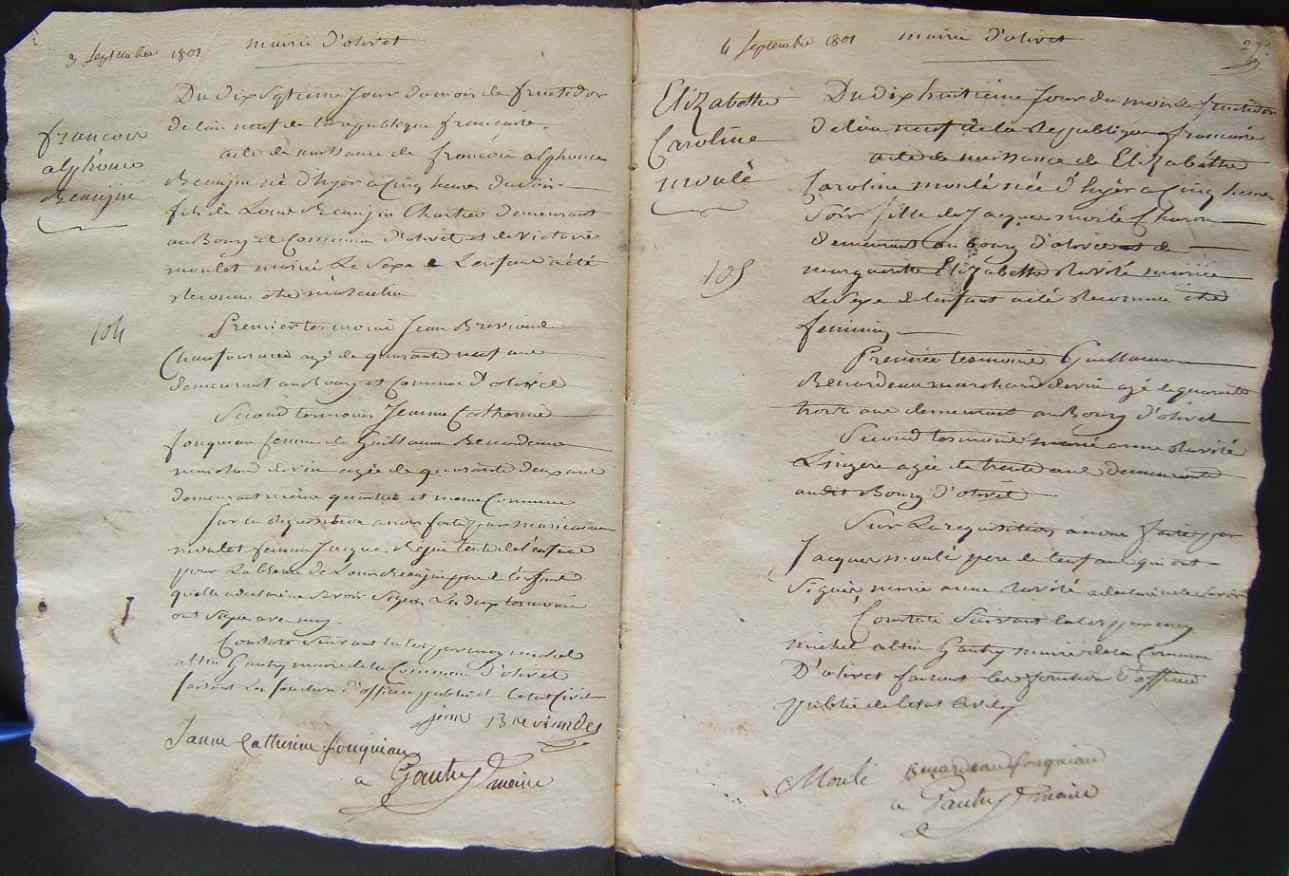 3 Septembre 1801 mairie d'olivet
françois
alphonse
Beaujin
104
Du dix Septieme Jour du mois de fructidor
de l'an neuf de la republique française.
acte de naissance de françois alphonse
Beaujin né d'hyer a Cinq heures du soir
fils de Louis Beaujin Chartier demeurant
au Bourg et Commune d'olivet et de Victoire
moulet mariés Le Sexe de L'enfant a été
Reconnu etre masculin
Premier tesmoin Jean Breviande
Chaufournier agé de quarante neuf ans
demeurant au Bourg et Commune D'olivet
Second tesmoin Jeanne Catherine
fouqueau femme de Guillaume Benardeau
marchand de vin agée de quarante deux ans
demeurant meme et meme Commune
Sur la requisition a nous faite par
moulet femme Jacque tente de l'enfant
pour de Louis Beaujin pere de l'enfant
quelle a declaré ne Savoir Signer Les deux tesmoins
ont Signé avec moy.
Constaté Suivant la loy par moy michel
altin Gautry maire de la Commune D'olivet
faisant Les fonction d'officier public de l'etat Civil
jean Breviandes
Janne Catherine fouqueau
a Gautry maire
4 Septembre 1801 mairie d'olivet
Elizabethe
Caroline
moulé
105
Du dix huitieme Jour du mois de fructidor
de l'an neuf de la Republique française
acte de naissance de Elizabethe
Caroline moulé née d'hyer a Cinq heures
Soir fille de Jacques moulé Charon
demeurant au bourg d'olivet et de
marguerite Elizabethe mariés
Le Sexe de l'enfant a été Reconnu etre
feminin
Premier tesmoin Guillaume
Benardeau marchand de vin agé de quarante
trois ans demeurant au Bourg d'olivet
Second tesmoin marie anne
Lingere agée de trente ans demeurante
audit Bourg d'olivet
Sur La requisition a nous faite par
Jacques moulé pere de l'enfant qui ont
Signé, marie anne a declaré ne Savoir
Constaté Suivant la loy par moy
michel altin Gautry maire de la Commune
D'olivet faisant les fonction d'officier
public de l'etat Civil
Moulé Benardeau fouqueau
a Gautry maire